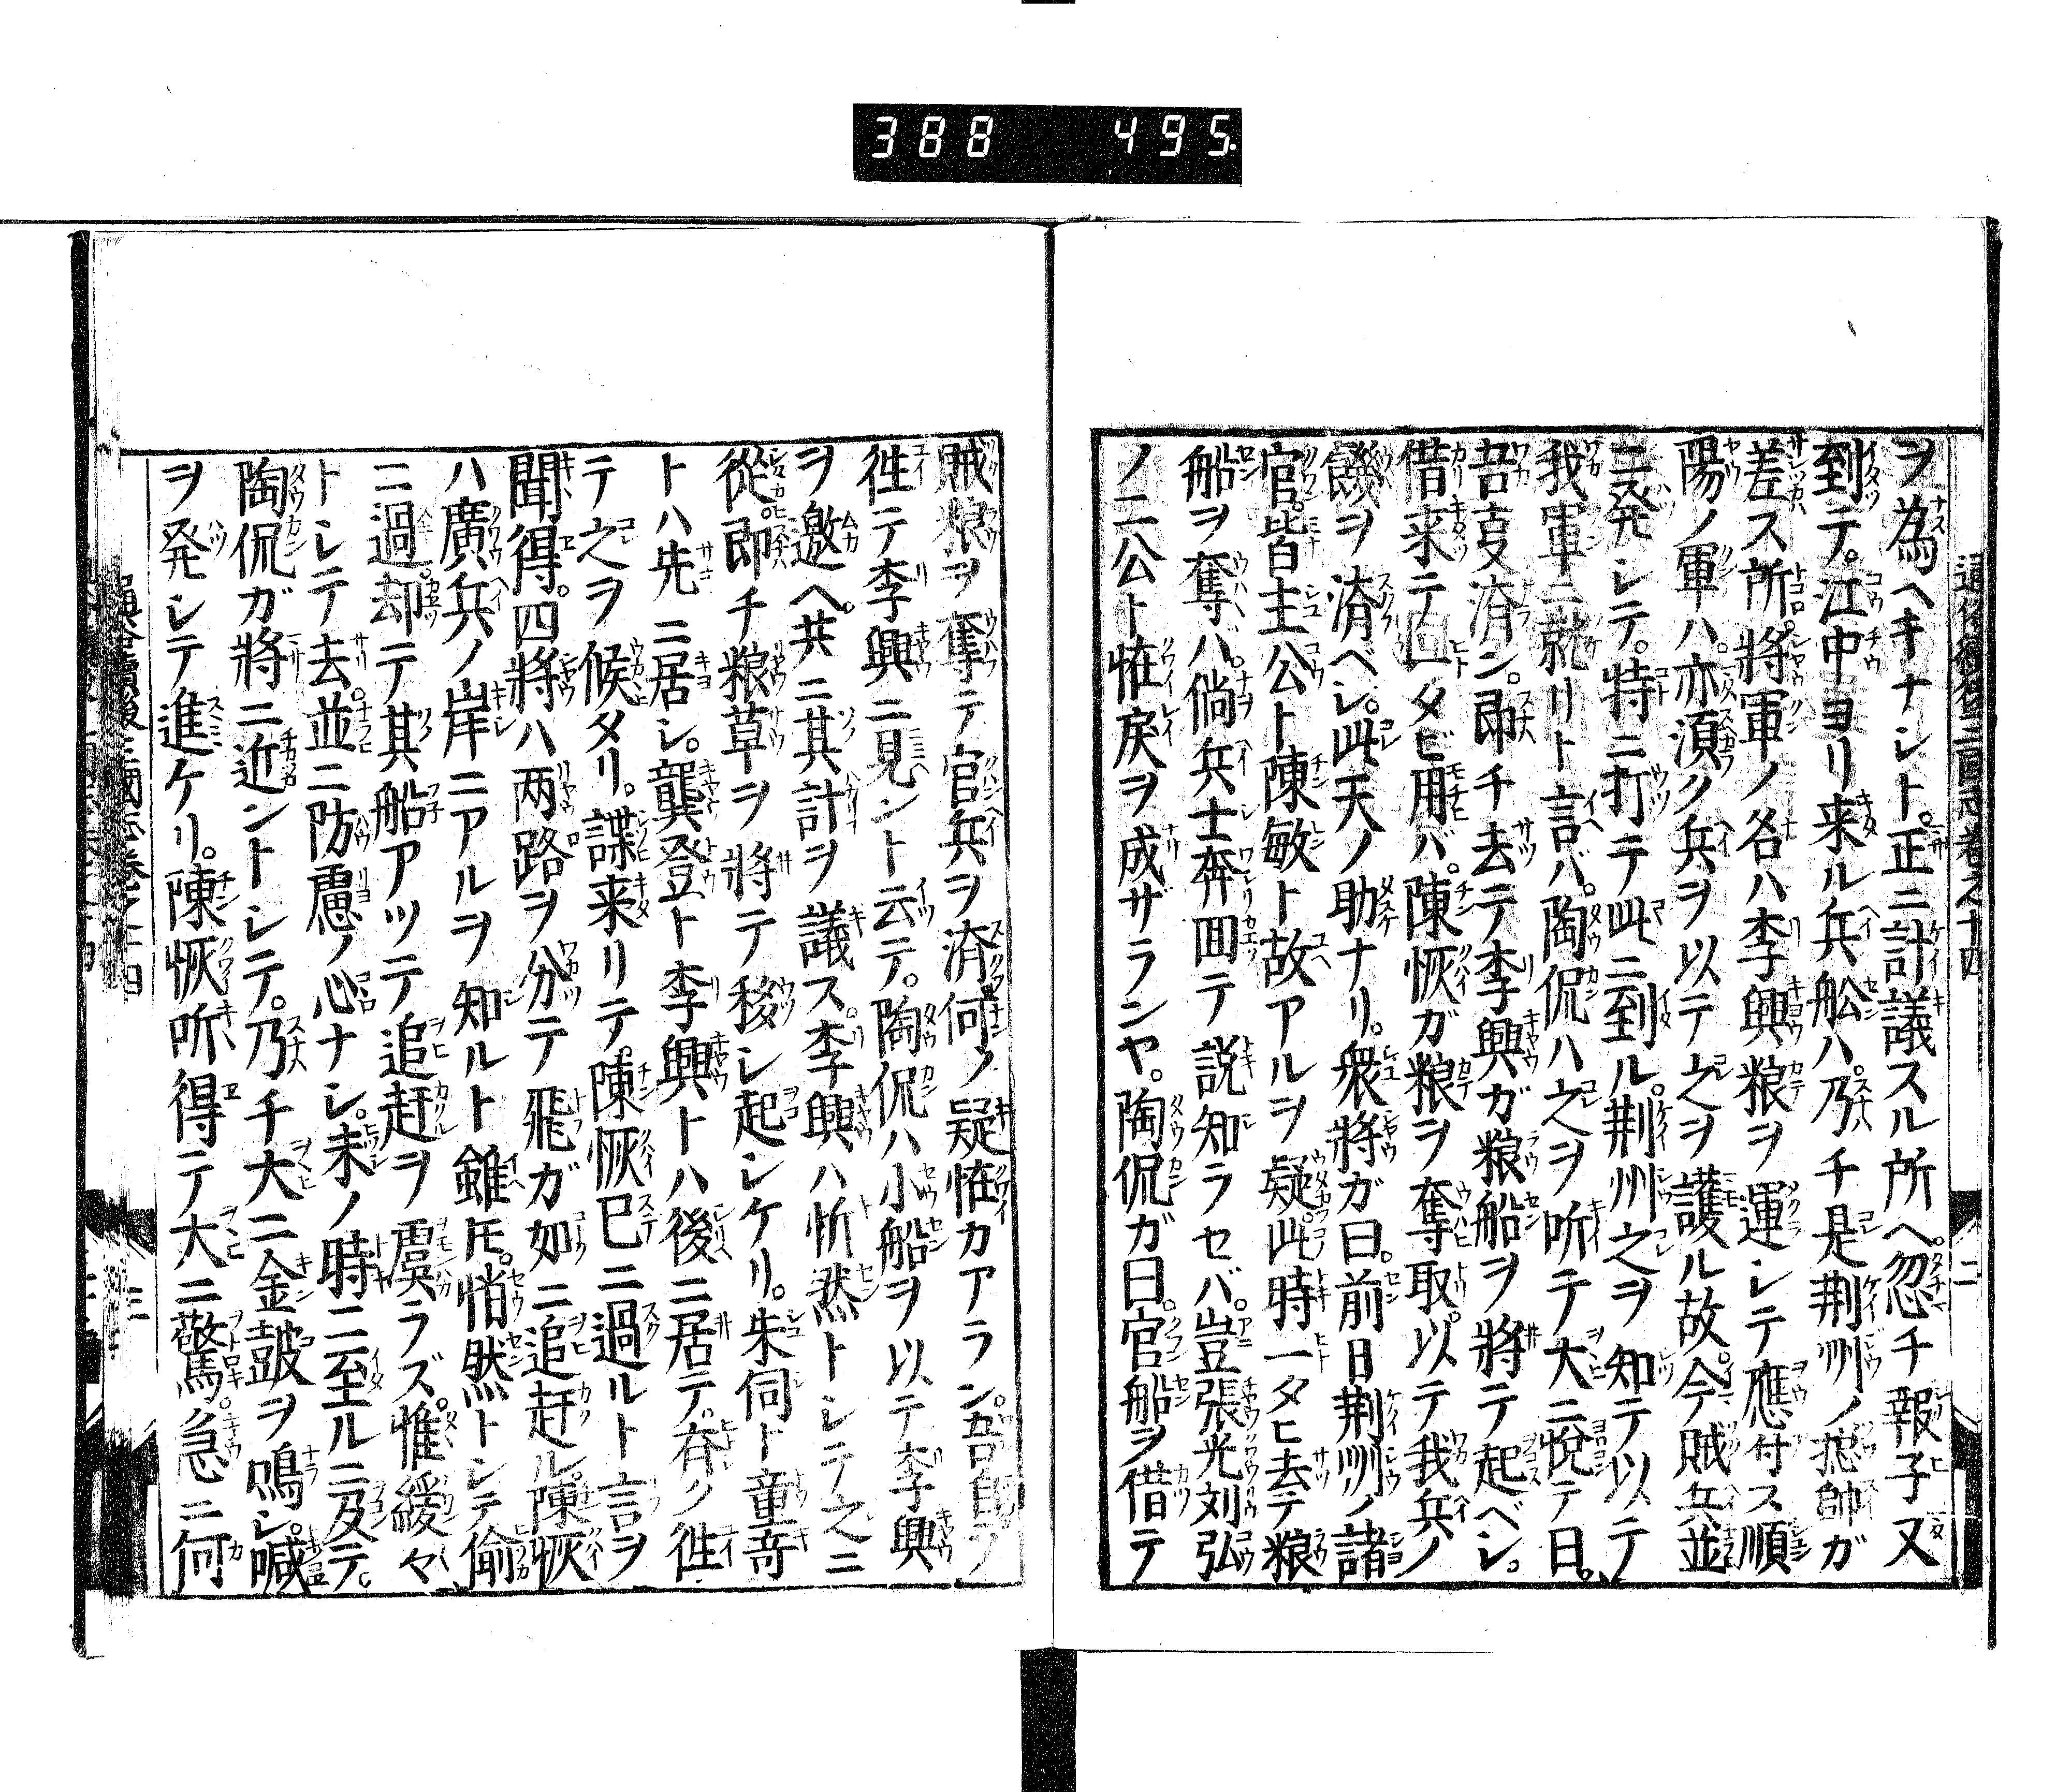 388 495.
通俗續後三國志卷之十四
二
ヲ為ヘキナシト。正ニ計議スル所ヘ。忽チ報子又
到テ。江中ヨリ来ル兵舩ハ。乃チ是荆州ノ總帥ガ
差ス所。將軍ノ各ハ李興粮ヲ運シテ應付ス順
陽ノ軍ハ。亦須ク兵ヲ以テ之ヲ護ル故。今賊兵並
ニ発シテ。特ニ打テ此ニ到ル。荆州之ヲ知テ以テ
我軍ニ就リト言バ。陶侃ハ之ヲ听テ大ニ悦テ曰。
吾叓済ン。即チ去テ李興ガ粮船ヲ將テ起ベシ。
借来テ一タビ用バ。陳恢ガ粮ヲ奪取。以テ我兵ノ
餓ヲ済ベシ。此天ノ助ナリ。衆將ガ曰。前日荆州ノ諸
官。皆主公ト陳敏ト故アルヲ疑。此時一タヒ去テ粮
船ヲ奪ハバ。倘兵士奔囬テ説知ラセバ。豈張光刘弘
ノ二公ト恠戻ヲ成ザランヤ。陶侃ガ曰。官船ヲ借テ
賊粮ヲ奪テ官兵ヲ済。何ノ疑恠カアラン。吾自ラ
徃テ李興ニ見ント云テ。陶侃ハ小船ヲ以テ李興
ヲ邀ヘ。共ニ其計ヲ議ス。李興ハ忻然トシテ之ニ
從。即チ粮草ヲ將テ移シ起シケリ。朱伺ト童竒
トハ先ニ居シ。龔登ト李興トハ後ニ居テ。夜ク徃
テ之ヲ候タリ。諜来リテ。陳恢巳ニ過ルト言ヲ
聞得。四將ハ两路ヲ分テ飛ガ如ニ追赶ル。陳恢
ハ廣兵ノ岸ニアルヲ知ルト雖モ。悄然トシテ偷
ニ過。却テ其船アツテ追赶ヲ虞ラズ。惟緩々
トシテ去。並ニ防慮ノ心ナシ。未ノ時ニ至ルニ及テ。
陶侃ガ將ニ近ントシテ。乃チ大ニ金皷ヲ鳴シ。喊
ヲ発シテ進ケリ。陳恢听得テ大ニ驚。急ニ何
三